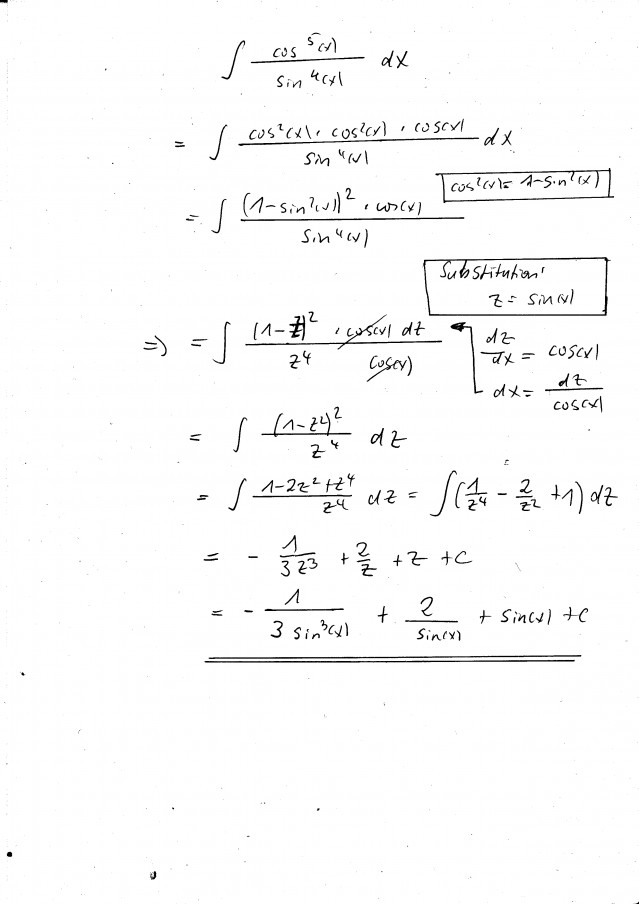 ∫ cos⁵(x) / sin⁴(x) dx
= ∫ cos²(x) · cos²(x) · cos(x) / sin⁴(x) dx
cos²(x) = 1-sin²(x)
= ∫ (1-sin²(x))² · cos(x) / sin⁴(x)
Substitution:
z = sin(x)
=> = ∫ (1-z)² · cos(x) dz / z⁴ cos(x)
dz/dx = cos(x)
dx = dz/cos(x)
= ∫ (1-z²)² / z⁴ dz
= ∫ 1-2z²+z⁴ / z⁴ dz = ∫ (1/z⁴ - 2/z² + 1) dz
= - 1/3z³ + 2/z + z + C
= - 1/3 sin³(x) + 2/sin(x) + sin(x) + C